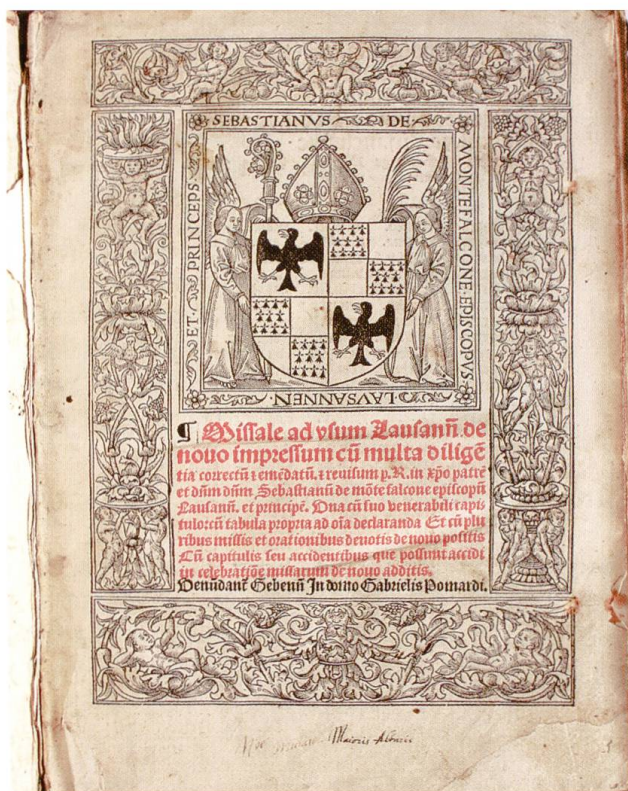 SEBASTIANVS DE
MONTEFALCONE·EPISCOPVS
LAVSANNEN·
ET· PRINCEPS
¶ Missale ad vsum Lausanñ. de
nouo impressum cū multa diligē
tia correctū ⁊ emēdatū. ⁊ reuisum p. R. in xp̄o patrē
et dn̄m dn̄m Sebastianū de mōte falcone episcopū
Lausanñ. et principē. Vna cū suo venerabili capi
tulo: cū tabula propria ad oīa declaranda Et cū plu
ribus missis et orationibus deuotis de nouo positis
Cū capitulis seu accidentibus que possunt accidi
in celebratiōe missarum de nouo additis.
Venūdant̄ Gebenñ In domo Gabrielis Pomardi.
Maioris